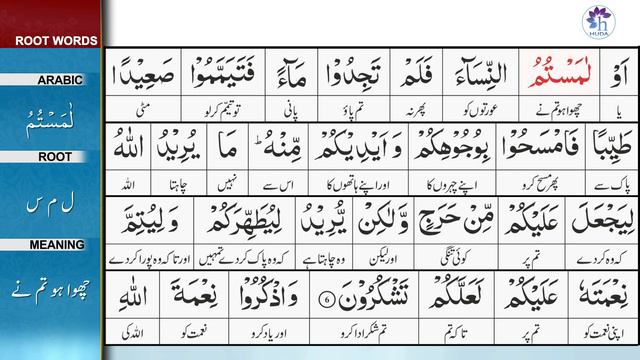 HUDA
ROOT WORDS
ARABIC
لٰمَسْتُمُ
ROOT
ل م س
MEANING
چھوا ہو تم نے
اَوْ لٰمَسْتُمُ النِّسَآءَ فَلَمْ تَجِدُوْا مَآءً فَتَيَمَّمُوْا صَعِيْدًا
یا چھوا ہو تم نے عورتوں کو پھر نہ تم پاؤ پانی تو تیمم کر لو مٹی
طَيِّبًا فَامْسَحُوْا بِوُجُوْهِكُمْ وَ اَيْدِيْكُمْ مِّنْهُ ؕ مَا يُرِيْدُ اللّٰهُ
پاک سے پھر مسح کرو اپنے چہروں کا اور اپنے ہاتھوں کا اس سے نہیں چاہتا اللہ
لِيَجْعَلَ عَلَيْكُمْ مِّنْ حَرَجٍ وَّلٰكِنْ يُّرِيْدُ لِيُطَهِّرَكُمْ وَ لِيُتِمَّ
کہ وہ کر دے تم پر کوئی تنگی اور لیکن وہ چاہتا ہے کہ وہ پاک کر دے تمہیں اور تاکہ وہ پورا کر دے
نِعْمَتَهٗ عَلَيْكُمْ لَعَلَّكُمْ تَشْكُرُوْنَ ﴿6﴾ وَاذْكُرُوْا نِعْمَةَ اللّٰهِ
اپنی نعمت کو تم پر تاکہ تم تم شکر ادا کرو اور یاد کرو نعمت کو اللہ کی